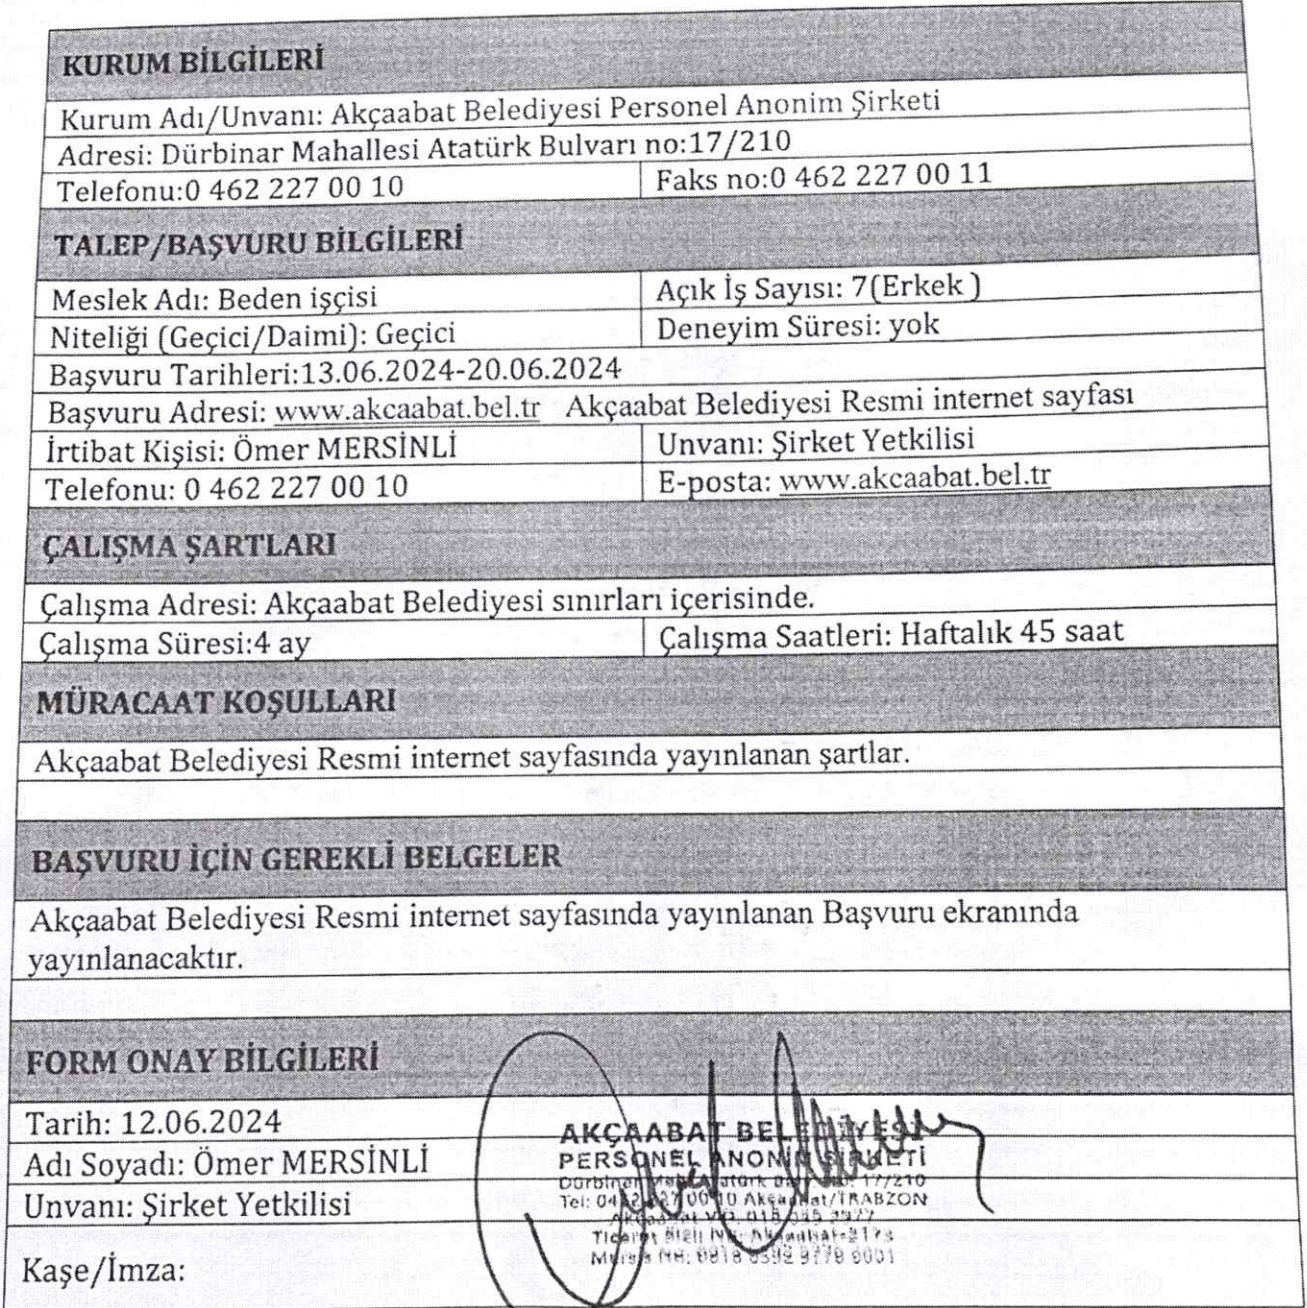 KURUM BİLGİLERİ
Kurum Adı/Unvanı: Akçaabat Belediyesi Personel Anonim Şirketi
Adresi: Dürbinar Mahallesi Atatürk Bulvarı no:17/210
Telefonu:0 462 227 00 10 Faks no:0 462 227 00 11
TALEP/BAŞVURU BİLGİLERİ
Meslek Adı: Beden işçisi Açık İş Sayısı: 7(Erkek )
Niteliği (Geçici/Daimi): Geçici Deneyim Süresi: yok
Başvuru Tarihleri:13.06.2024-20.06.2024
Başvuru Adresi: www.akcaabat.bel.tr Akçaabat Belediyesi Resmi internet sayfası
İrtibat Kişisi: Ömer MERSİNLİ Unvanı: Şirket Yetkilisi
Telefonu: 0 462 227 00 10 E-posta: www.akcaabat.bel.tr
ÇALIŞMA ŞARTLARI
Çalışma Adresi: Akçaabat Belediyesi sınırları içerisinde.
Çalışma Süresi:4 ay Çalışma Saatleri: Haftalık 45 saat
MÜRACAAT KOŞULLARI
Akçaabat Belediyesi Resmi internet sayfasında yayınlanan şartlar.
BAŞVURU İÇİN GEREKLİ BELGELER
Akçaabat Belediyesi Resmi internet sayfasında yayınlanan Başvuru ekranında
yayınlanacaktır.
FORM ONAY BİLGİLERİ
Tarih: 12.06.2024
Adı Soyadı: Ömer MERSİNLİ
Unvanı: Şirket Yetkilisi
Kaşe/İmza:
AKÇAABAT BELEDİYESİ
PERSONEL ANONİM ŞİRKETİ
17/210
Tel: Akçaabat/TRABZON